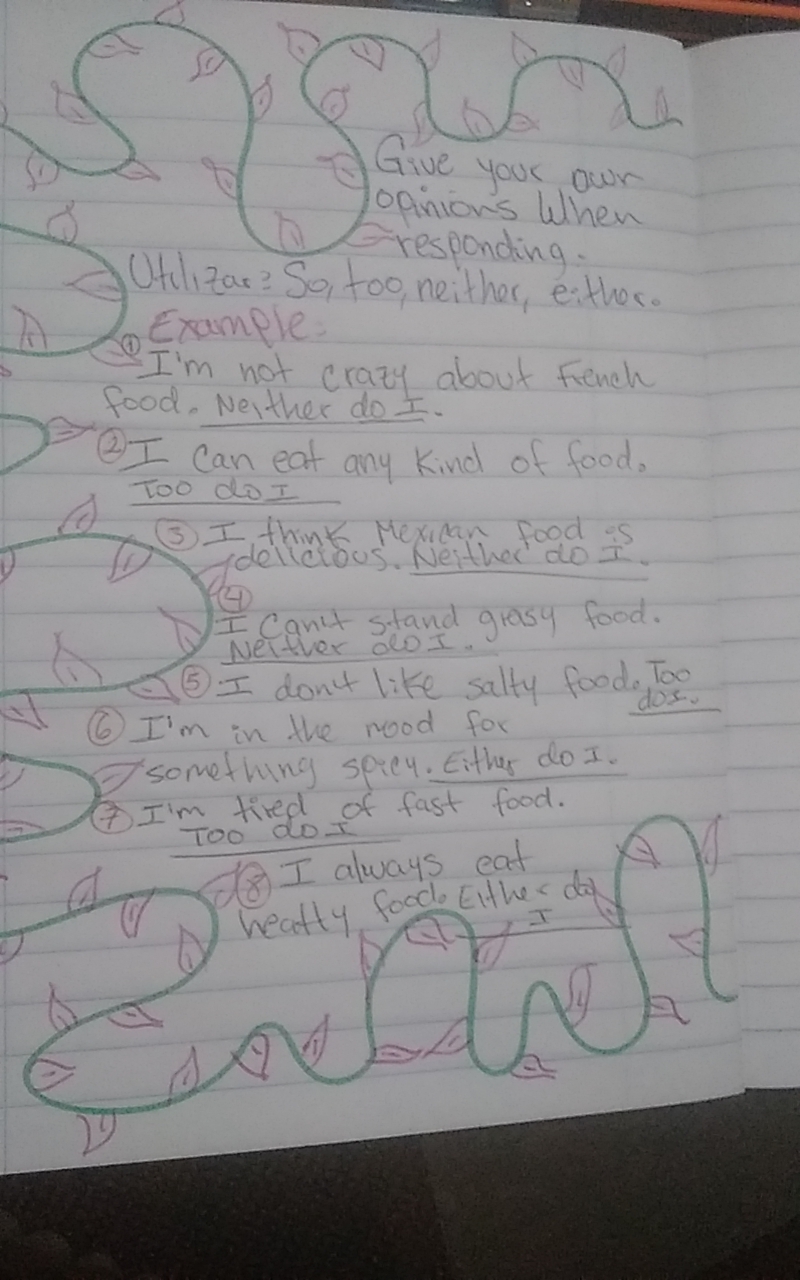 Give your own
opinions When
responding.
Utilizar: So, too, neither, either.
Example:
① I'm not crazy about French
food. Neither do I.
② I can eat any kind of food.
Too do I
③ I think Mexican food is
delicious. Neither do I.
④
I can't stand grasy food.
Neither do I.
⑤ I don't like salty food. Too
do I.
⑥ I'm in the mood for
something spicy. Either do I.
⑦ I'm tired of fast food.
Too do I
⑧ I always eat
healty food. Either do
I